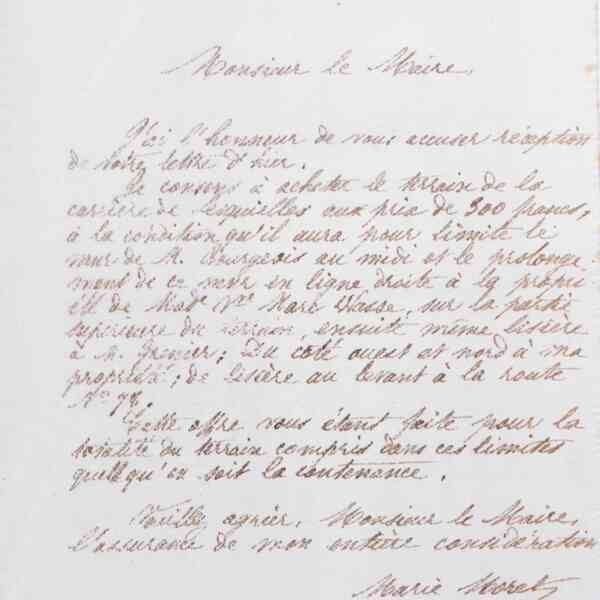 Monsieur le Maire,
J'ai l'honneur de vous accuser réception
de votre lettre d'hier.
Je consens à acheter le terrain de la
carrière de Lesquielles aux prix de 300 francs,
à la condition qu'il aura pour limite le
mur de M. Bourgeois au midi et le prolonge
ment de ce mur en ligne droite à la propri
été de Mad. Vve Marc Wasse, sur la partie
supérieure du terrain, ensuite même lisière
à M. Grenier; Du côté ouest et nord à ma
propriété; de lisière au levant à la route
No
Cette offre vous étant faite pour la
totalité du terrain compris dans ces limites
quelle qu'en soit la contenance.
Veuillez agréer, Monsieur le Maire,
l'assurance de mon entière considération
Marie Moret